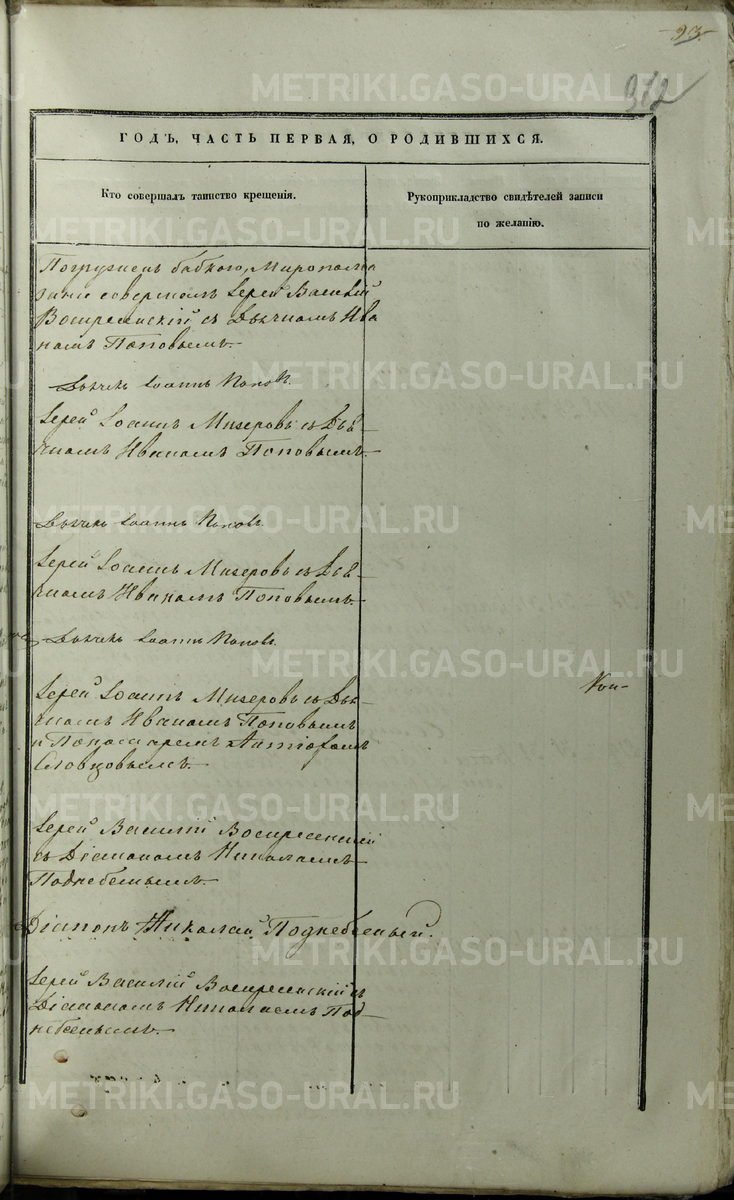 23
912
ГОДЪ, ЧАСТЬ ПЕРВАЯ, О РОДИВШИХСЯ.
Кто совершалъ таинство крещенія.
Рукоприкладство свидѣтелей записи
по желанію.
Погруженъ бабкою, Миропома
заніе совершалъ Іерей Василій
Воскресенскій съ Дьячкомъ Ива
номъ Поповымъ.
Дьячекъ Іоаннъ Поповъ.
Іерей Іоаннъ Мизеровъ съ Дья-
чкомъ Иваномъ Поповымъ.
Дьячекъ Іоаннъ Поповъ.
Іерей Іоаннъ Мизеровъ съ Дья-
чкомъ Иваномъ Поповымъ.
Дьячекъ Іоаннъ Поповъ.
Іерей Іоаннъ Мизеровъ съ Дья-
чкомъ Иваномъ Поповымъ
и Пономаремъ
Словцовымъ.
Іерей Василій Воскресенскій
съ Діакономъ Николаемъ
Поднебеснымъ.
Діаконъ Николай Поднебесный.
Іерей Василій Воскресенскій съ
Діакономъ Николаемъ Под-
небеснымъ.
METRIKI.GASO-URAL.RU